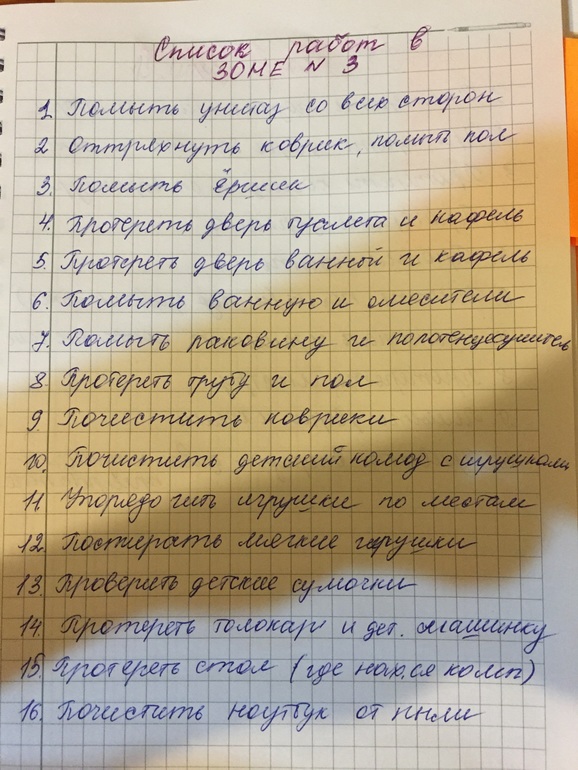 Список работ в
ЗОНЕ N 3
1. Помыть унитаз со всех сторон
2 Оттряхнуть коврик, помыть пол
3. Помыть ёршик
4. Протереть дверь туалета и кафель
5. Протереть дверь ванной и кафель
6. Помыть ванную и смесители
7. Помыть раковину и полотенцесушитель
8 Протереть трубу и пол
9. Почистить коврики
10. Почистить детский комод с игрушками
11 Упорядочить игрушки по местам
12. Постирать мягкие игрушки
13. Проверить детские сумочки
14. Протереть толокар и дет. машинку
15. Протереть стол (где нах.ся комп)
16. Почистить ноутбук от пыли